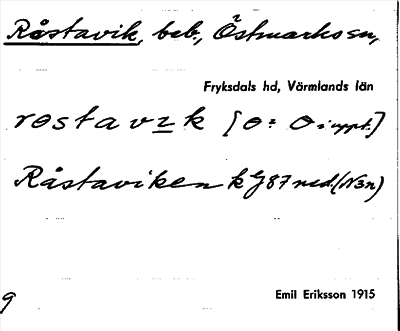 Råstavik, beb., Östmarks sn,
Fryksdals hd, Värmlands län
rɵstavɪk [ɵ: ɵ i uppt.]
Råstaviken k Ej 87 ned. (N3n)
Emil Eriksson 1915
9